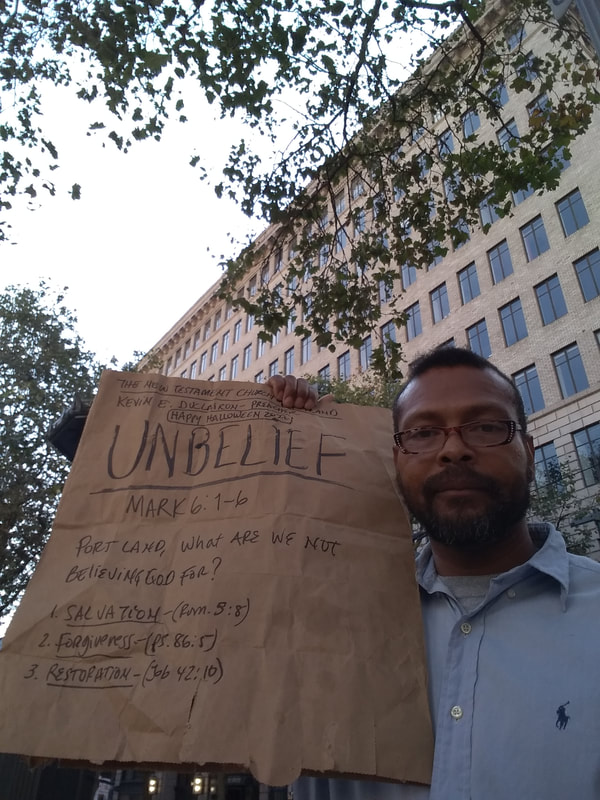 THE NEW TESTAMENT CHURCH
KEVIN E.
(HAPPY HALLOWEEN
UNBELIEF
MARK 6:1-6
PORTLAND, WHAT ARE WE NOT
BELIEVING GOD FOR?
1. SALVATION-(Rom. 5:8)
2. FORGIVENESS-(PS. 86:5)
3. RESTORATION-(Job 42:10)